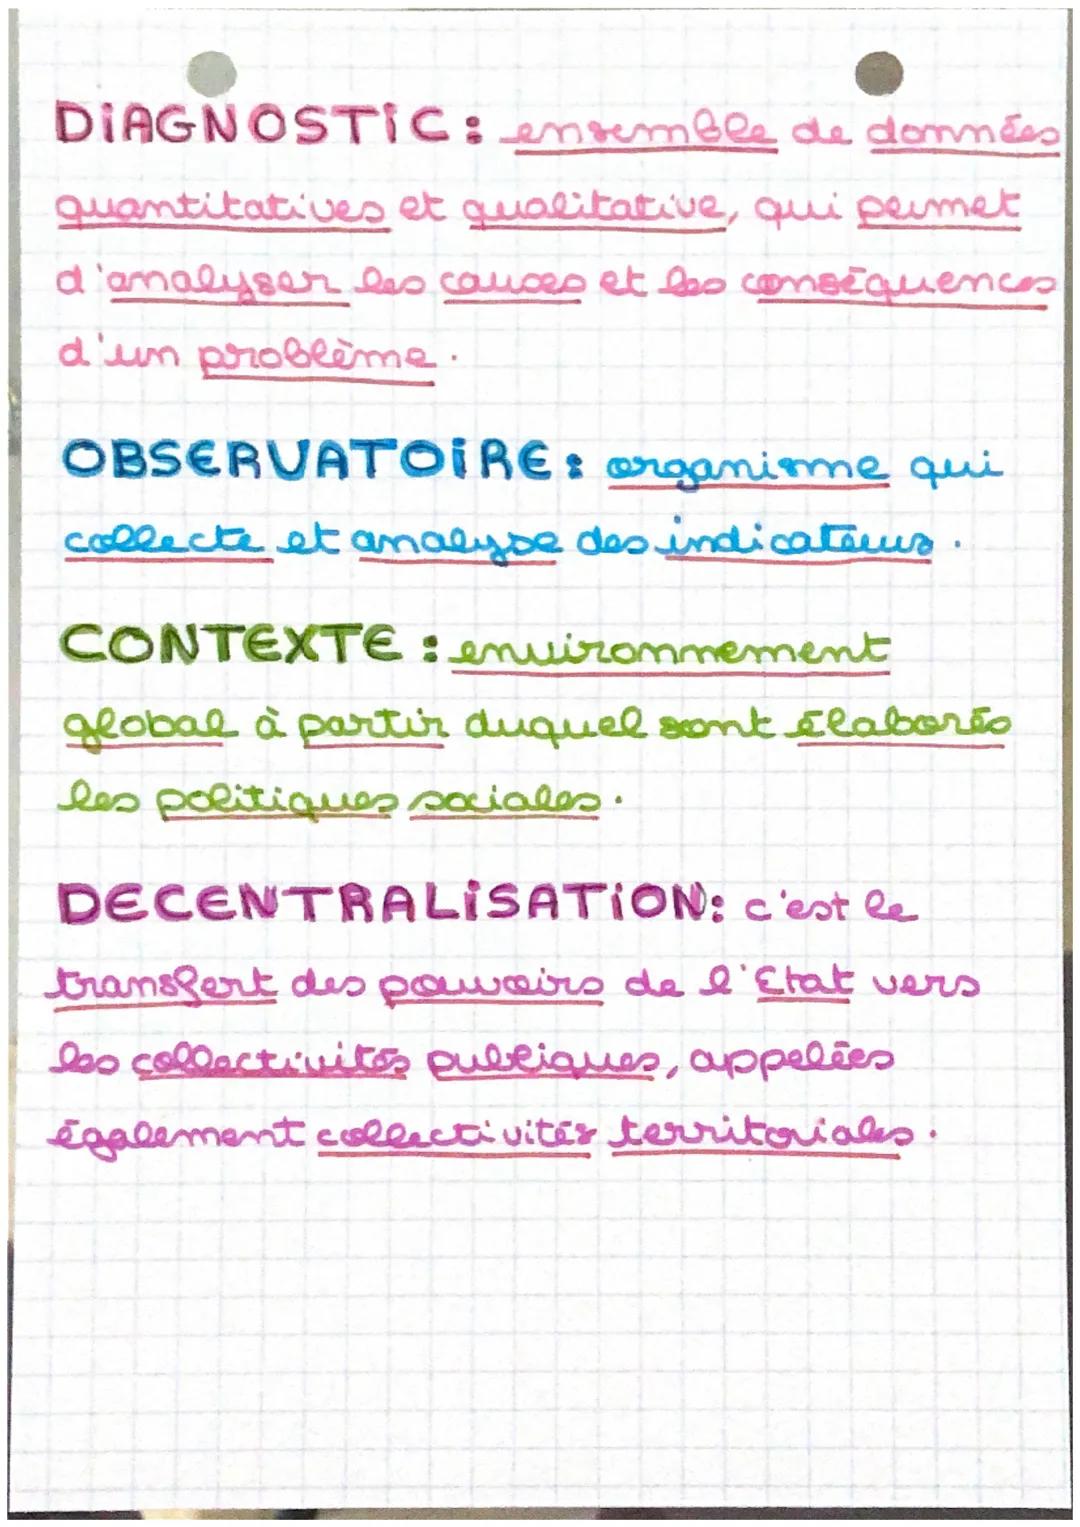 DiAGNOSTiC : ensemble de données
quantitatives et qualitative, qui permet
d'analyser les causes et les conséquences
d'un problème.
OBSERVATOiRE : organisme qui
collecte et analyse des indicateurs.
CONTEXTE : environnement
global à partir duquel sont élaborés
les politiques sociales.
DECENTRALiSATiON : c'est le
transfert des pouvoirs de l'Etat vers
les collectivités publiques, appelées
également collectivités territoriales.